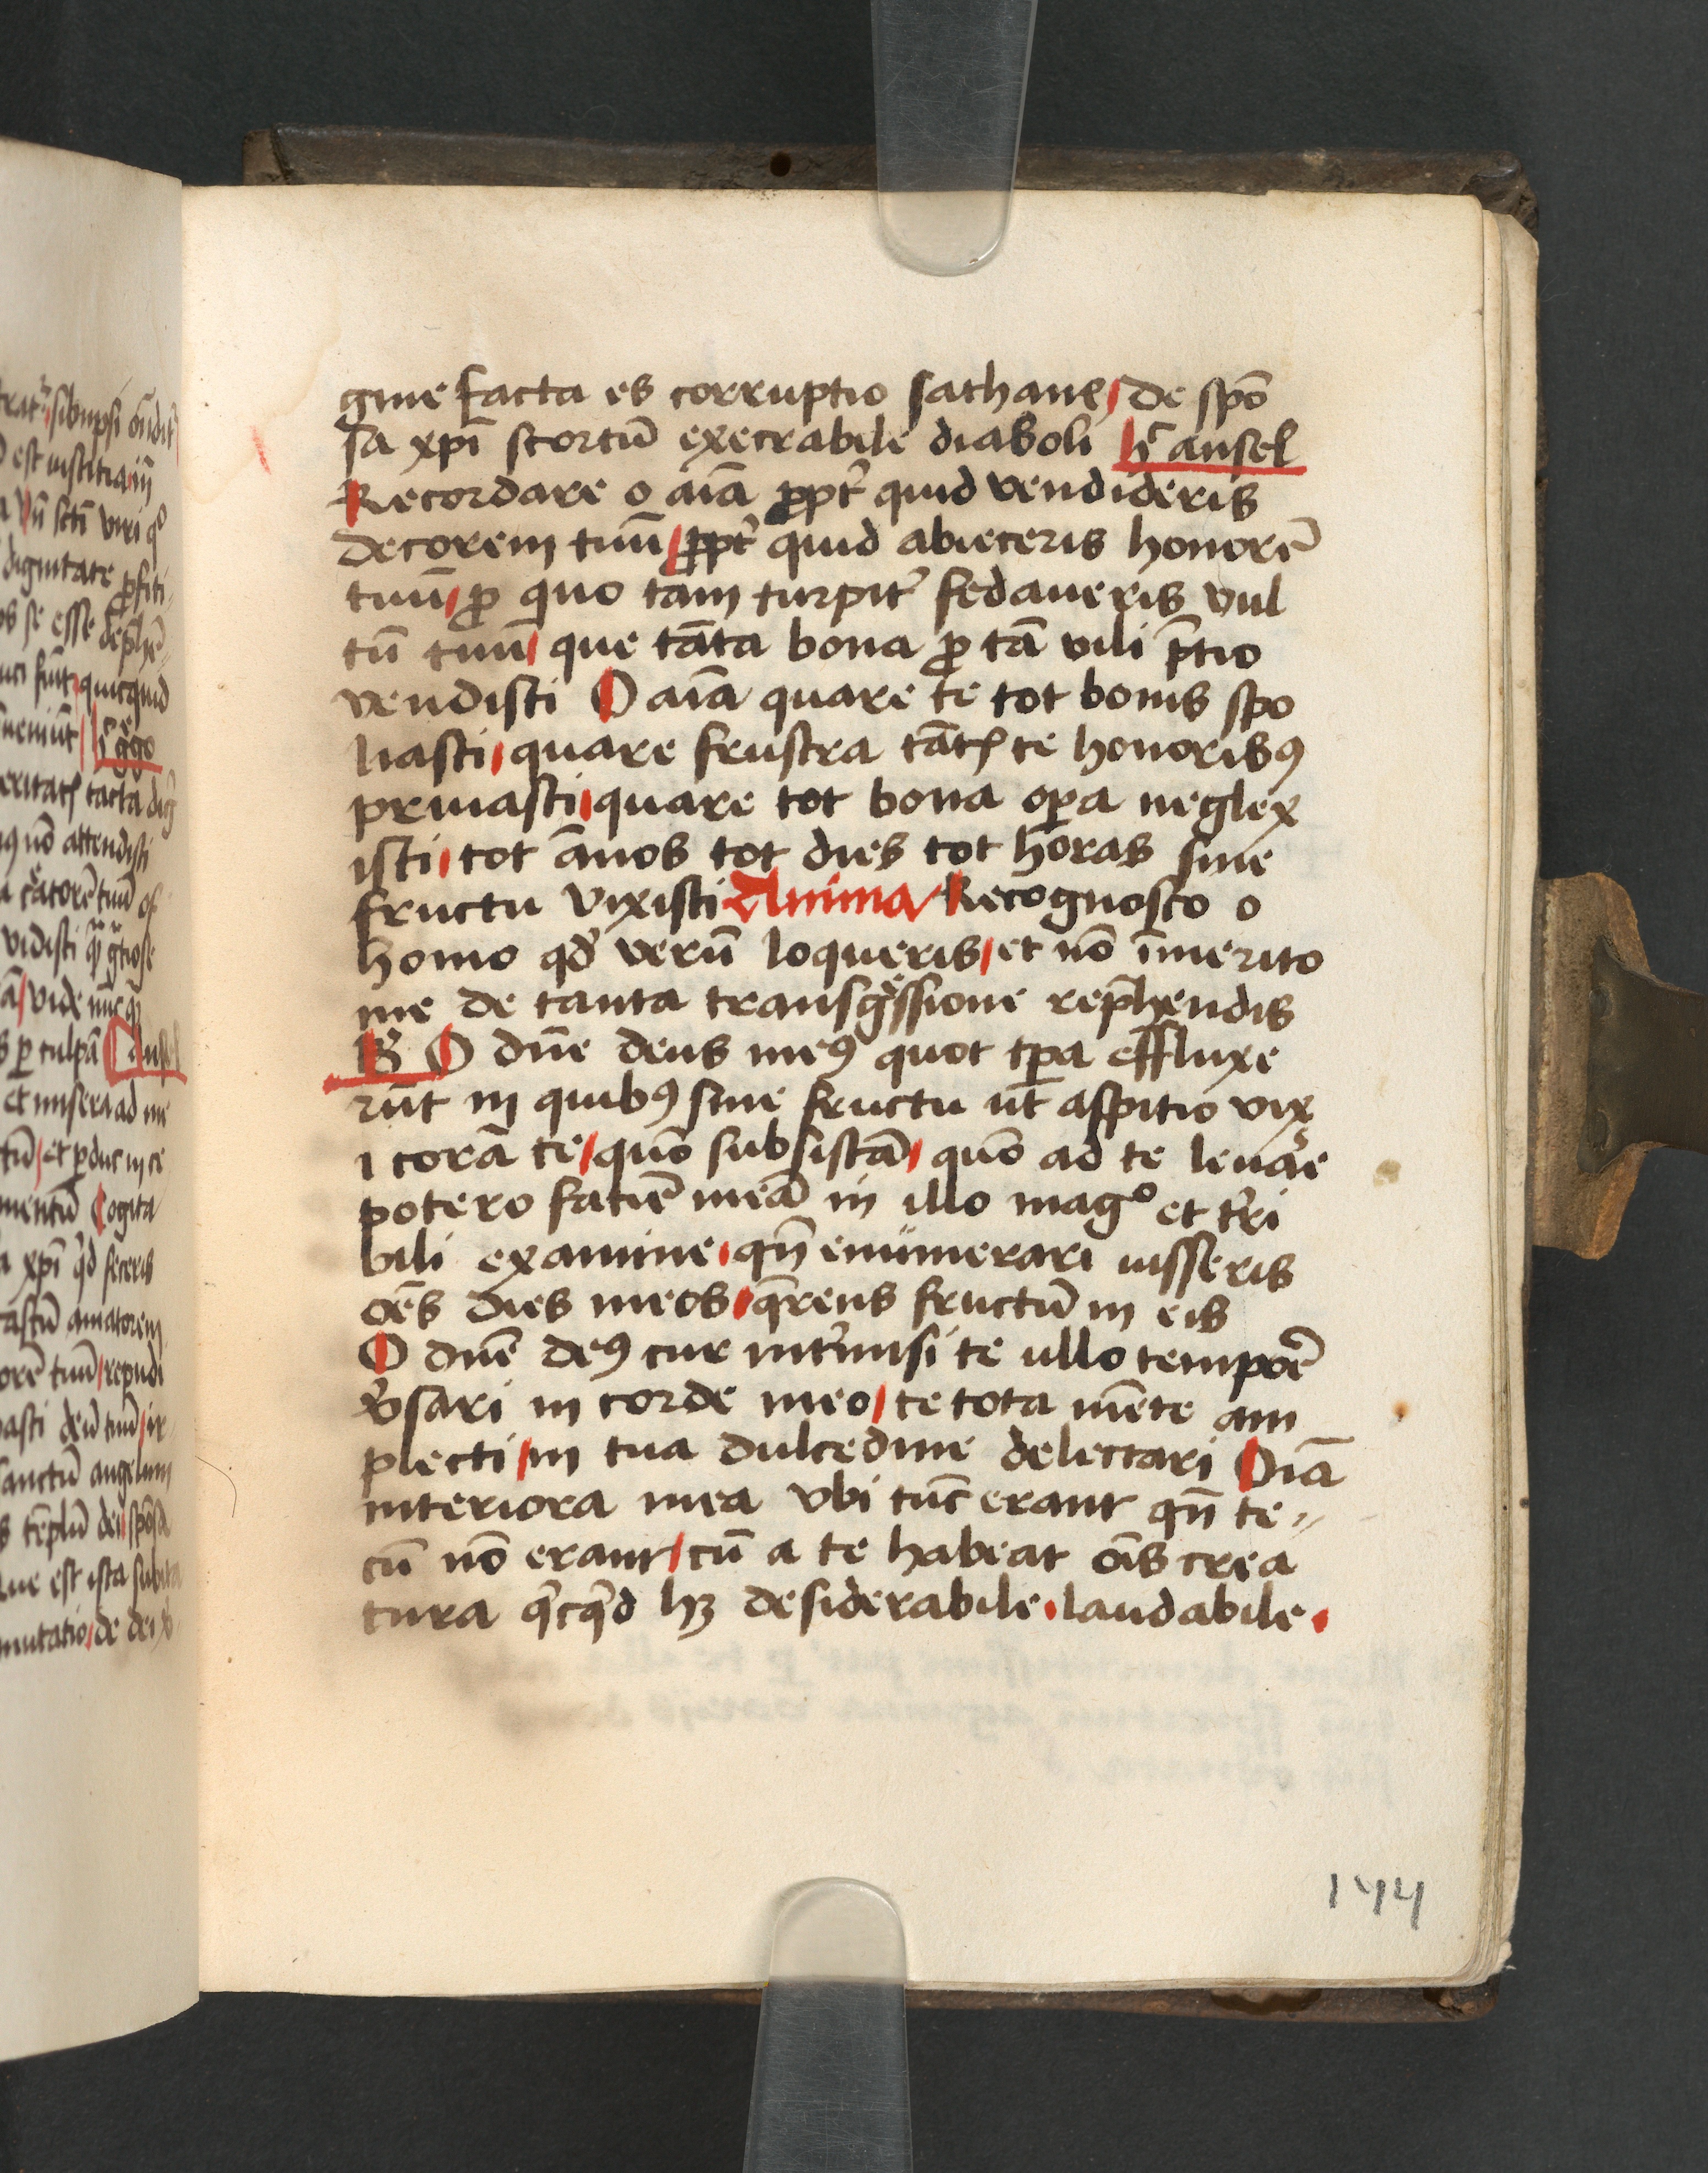 gine facta es corruptio sathane, de spō
sa xp̄i scortū execrabile diaboli hͨ ansel
Recordare o aīa ꝓpt̉ quid vendideris
decorem tuū, ꝓpt̉ quid abieceris honorē
tuū, ꝓ quo tam turpit̉ fedaueris vul
tū tuū, que tāta bona ꝓ tā vili p̄tio
vendisti O aīa quare te tot bonis spo
liasti, quare frustra tāt te honoribꝯ
priuasti, quare tot bona oꝑa neglex
isti, tot ānos tot dies tot horas sine
fructu vixisti Anima Recognosco o
homo qđ verū loqueris, et nō īmerito
me de tanta transg̉ssione rep̄hendis
B̉ O dn̄e deus meꝯ quot tꝑa effluxe
rūt in quibꝯ sine fructu ūt aspitio vix
i corā te, quō subsistā, quō ad te leuare
potero faciē meā in illo magᵒ et t̉ri
bili examine, qn̄ enumerari iusseris
oēs dies meos, q̄rens fructū in eis
O dn̄e deꝯ cur int̉misi te ullo tempoꝛē
v̉sari in corde meo, te tota mēte am
plecti, in tua dulcedine delectari Oīa
interiora mea vbi tūc erant qn̄ te⸗
cū nō erant, cū a te habeat oīs crea
tura qͥcqͥd hꝫ desiderabile, laudabile,
144